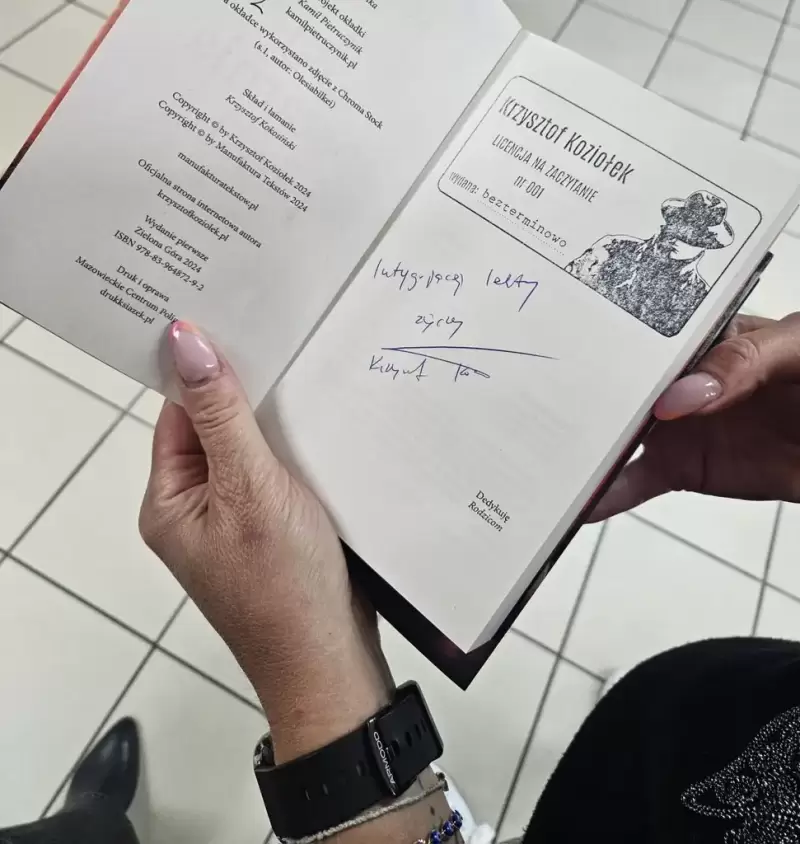 Kamil Pietruczynik
kamilpietruczynik.pl
okładce wykorzystano zdjęcie z Chroma Stock
(s.1, autor: Olesiabilkei)
Skład i łamanie
Krzysztof Kokosiński
Copyright © by Krzysztof Koziołek 2024
Copyright © by Manufaktura Tekstów 2024
manufakturatekstow.pl
Oficjalna strona internetowa autora
krzysztofkoziolek.pl
Wydanie pierwsze
Zielona Góra 2024
ISBN 978-83-964872-9-2
Druk i oprawa
Mazowieckie Centrum
drukksiazek.pl
Krzysztof Koziołek
LICENCJA NA ZACZYTANIE
nr 001
wydana: bezterminowo
życzy
Dedykuję
Rodzicom
ARMODD